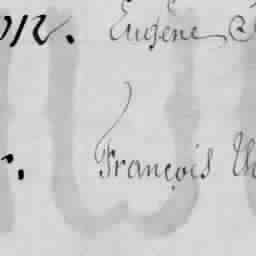 on. Eugène
r. François Th